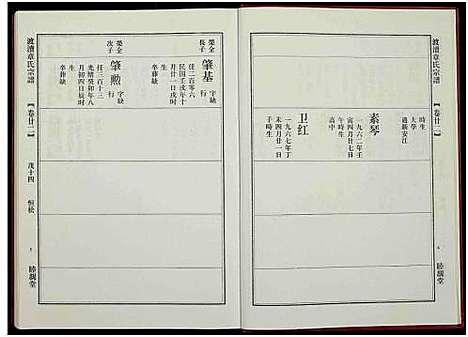 渡瀆章氏宗譜
卷廿二
時生
大學
適新安江
素琴
一九六二年壬
寅四月廿七日
午時生
高中
卫红
一九六七年丁
未四月廿一日
子時生
睦親堂
榮全
長子
肇基
字缺
行
任二百零六
民國壬戌年十
月廿一日戌時
卒葬缺
榮全
次子
肇勳
字缺
行
任三百十三
光緒癸卯年八
月初四日辰時
生卒葬缺
渡瀆章氏宗譜
卷廿二
茂十四
恒松
睦親堂